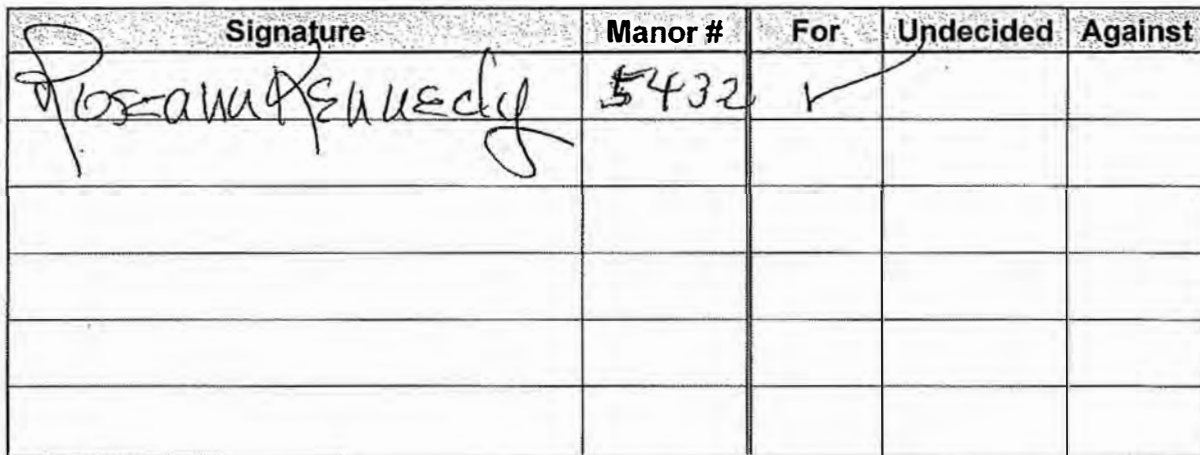 Signature Manor # For Undecided Against
Roseann Kennedy 5432 ✓